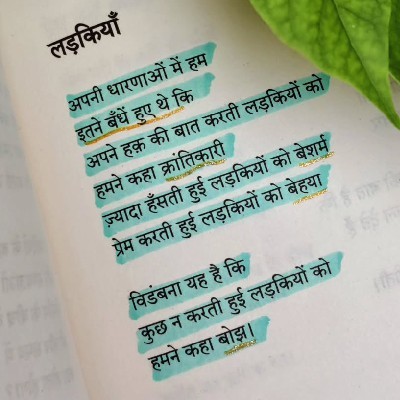 लड़कियाँ
अपनी धारणाओं में हम
इतने बँधें हुए थे कि
अपने हक़ की बात करती लड़कियों को
हमने कहा क्रांतिकारी
ज़्यादा हँसती हुई लड़कियों को बेशर्म
प्रेम करती हुई लड़कियों को बेहया
विडंबना यह है कि
कुछ न करती हुई लड़कियों को
हमने कहा बोझ।